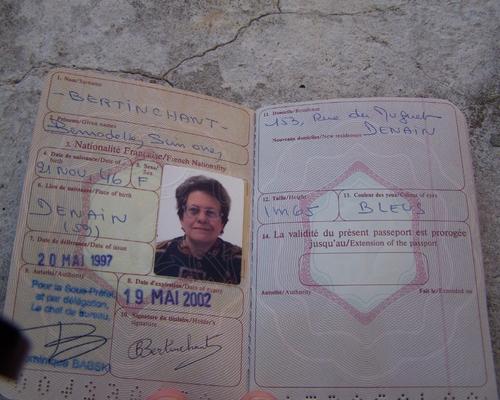 1. Nom/Surname
-BERTINCHANT-
2. Prénoms/Given names
Bernadette, Simone,
3. Nationalité Française/French Nationality
4. Date de naissance/Date of birth
21 NOV. 46
5. Sexe/Sex
F
6. Lieu de naissance/Place of birth
DENAIN
(59)
7. Date de délivrance/Date of issue
20 MAI 1997
8. Date d'expiration/Date of expiry
19 MAI 2002
9. Autorité/Authority
Pour le Sous-Préfet
et par délégation,
Le chef de bureau,
Dominique BABSKI
10. Signature du titulaire/Holder's signature
Bertinchant
11. Domicile/Residence
153, Rue du Muguet
DENAIN
Nouveaux domiciles/New residences
12. Taille/Height
1m65
13. Couleur des yeux/Colour of eyes
BLEUS
14. La validité du présent passeport est prorogée
jusqu'au/Extension of the passport
Autorité/Authority
Fait le/Extended on